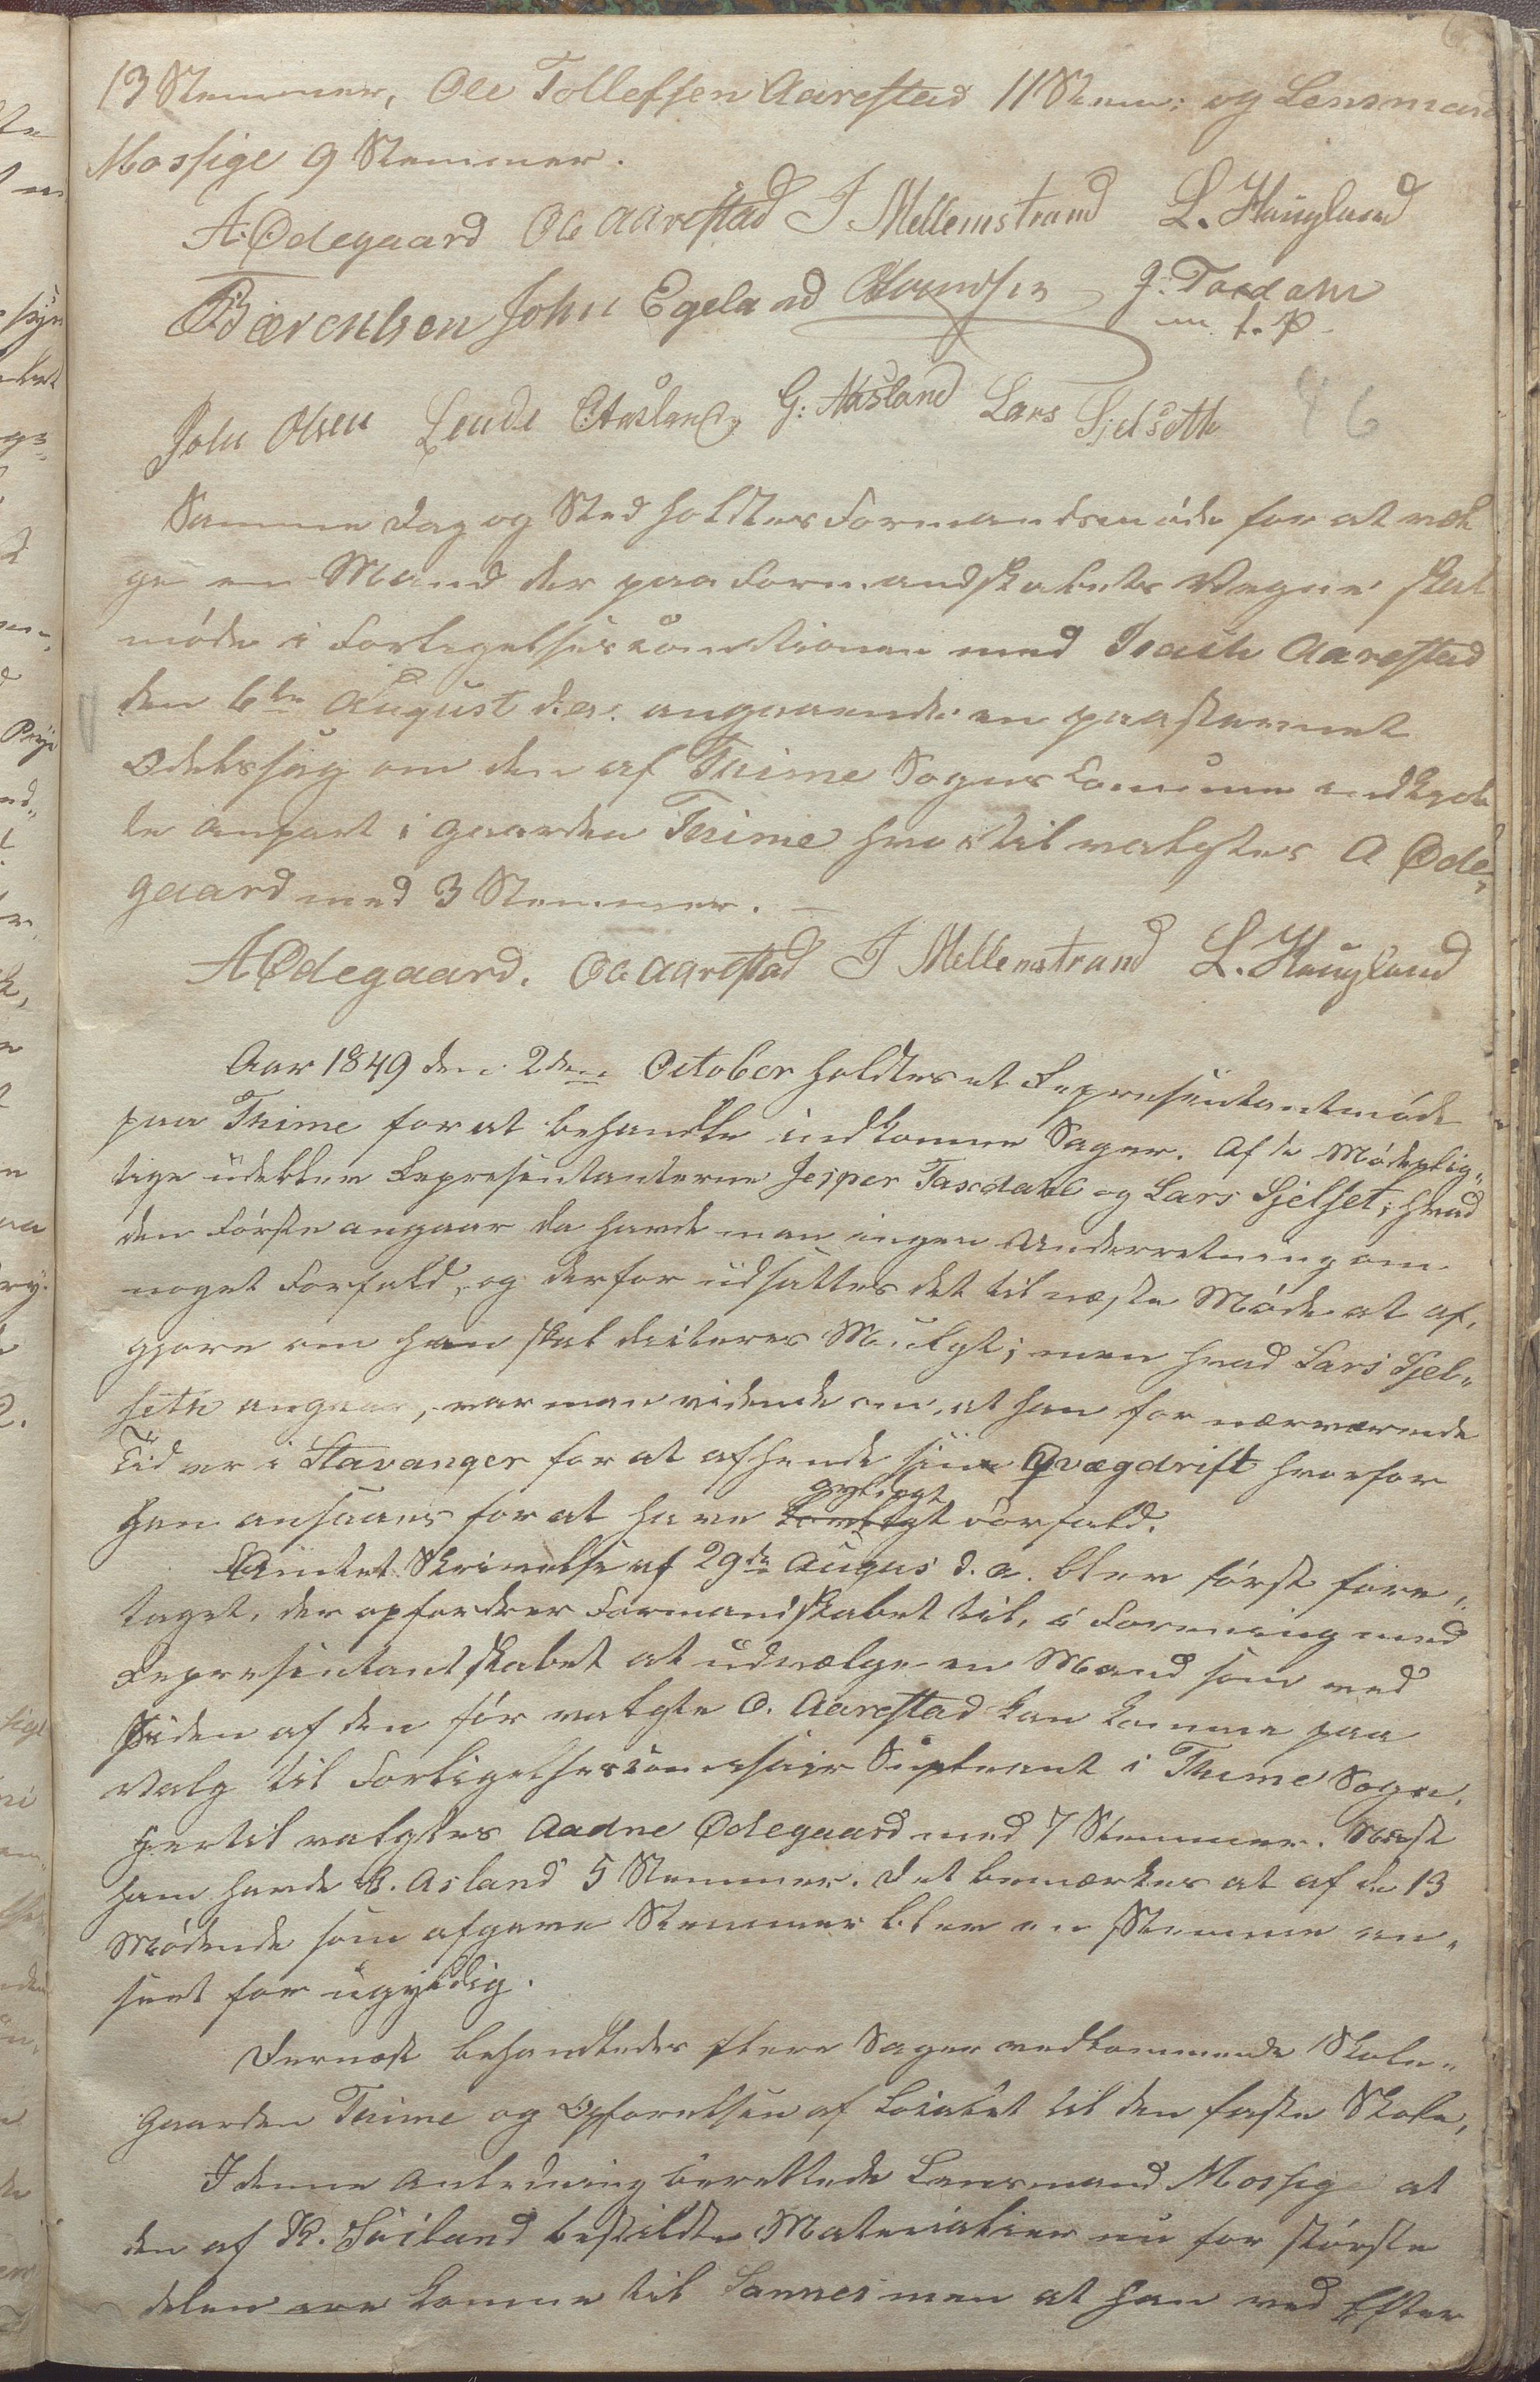 13 Stemmer, Ole Tollefsen Aarestad 11 Stem: og Lensmand
Mossige 9 Stemmer.
A. Ødegaard Ole Aarestad J. Mellemstrand L. Haugland
Bærentsen John Egeland J. Taxdahl
m. f. P.
John Olsen Lende G: Aasland Lars Sjelseth
96
Samme Dag og Sted holdtes Formandsmøde for at væl
ge en Mand der paa Formandskabets Vegne skal
møde i Forligelses med Aarestad
den 6te August d. a. angaaende en paastævnet
Odelssag om den af Thime Sogns Comune indkjøb
te Anpart i Gaarden Thime hvortil valgtes A Øde„
gaard med 3 Stemmer. –
A Ødegaard. Ole Aarestad J Mellemstrand L. Haugland
Aar 1849 den 2den October holdtes et Representantmøde
paa Thime for at behandle indkomne Sager. Af de Mødeplig„
tige udeblev Representanterne Jesper Taxdahl og Lars Sjelset; hvad
den Første angaar da havde man ingen Underretning om
noget Forfald, og derfor udsattes det til næste Møde at af„
gjøre om han skal ikteres Mulgt; men hvad Lars Sjel„
seth angaar, var man vidende om, at han for nærværende
Tid er i Stavanger for at afhende sin Qvægdrift hvorfor
gyldigt
han ansaaes for at have lovligt Forfald.
Amtets Skrivelse af 29de Augus d. a. blev først fore„
taget, der opfordrer Formandskabet til, i Forening med
Representantskabet at udvælge en Mand som ved
Siden af den før valgte O. Aarestad kan komme paa
Valg til Forligelsescomisair Supleant i Thime Sogn.
Hertil valgtes Aadne Ødegaard med 7 Stemmer. Næst
ham havde B. Asland 5 Stemmer. Det bemærkes at af de 13
Mødende som afgave Stemmer blev en Stemme an„
seet for ugyldig.
Dernæst behandledes flere Sager vedkommende Skole„
gaarden Thime og Opførelsen af Localet til den faste Skole,
I denne Anledning berettede Lensmand Mossige at
den af R. Søiland bestildte Materialier nu for største
delen ere komne til Sannes men at han ved Efter